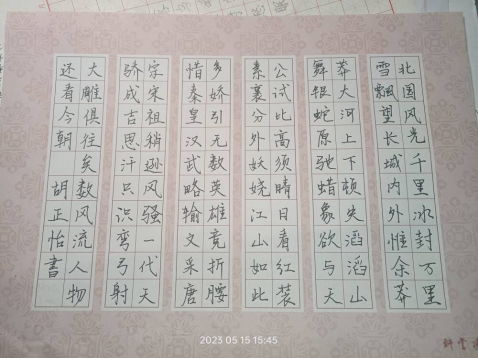 北国风光千里冰封万里
雪飘望长城内外惟余莽
莽大河上下顿失滔滔山
舞银蛇原驰蜡象欲与天
公试比高须晴日看红装
素裹分外妖娆江山如此
多娇引无数英雄竞折腰
惜秦皇汉武略输文采唐
宗宋祖稍逊风骚一代天
骄成吉思汗只识弯弓射
大雕俱往矣数风流人物
还看今朝 胡正怡书
2023 05 15 15:45